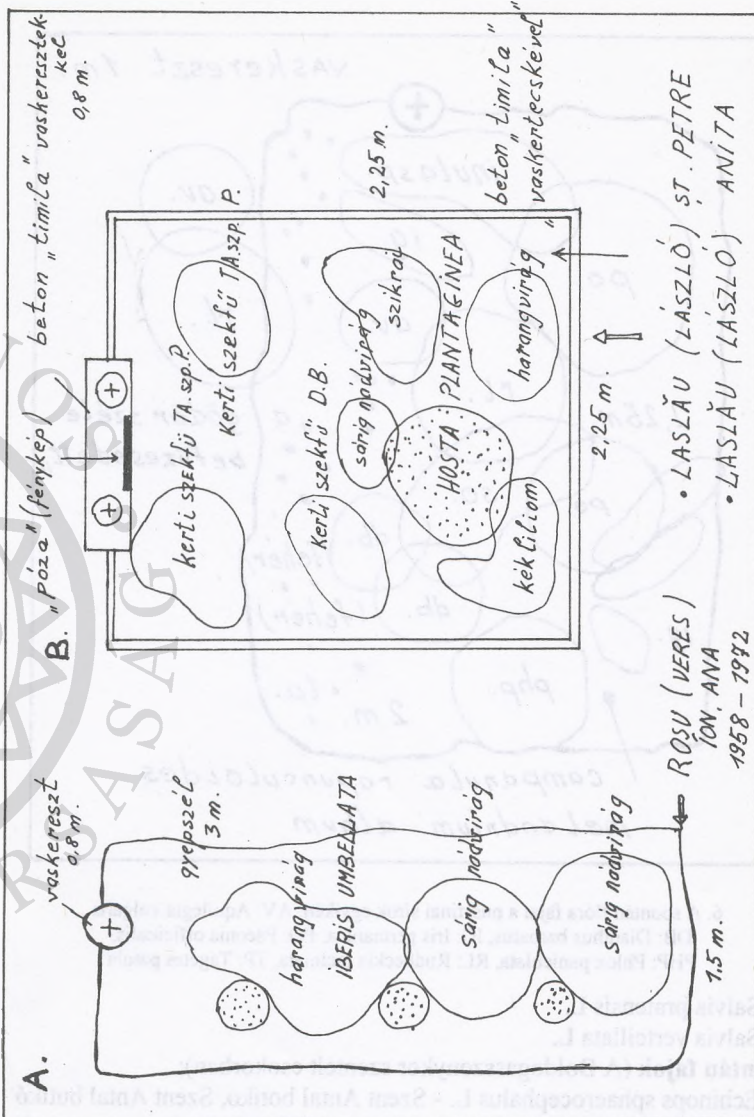 A.
vaskereszt
0,8 m.
gyepszél
3 m.
harangvirág
IBERIS UMBELLATA
sárig nádvirág
sárig nádvirág
1,5 m.
ROȘU (VERES)
ION - ANA
1958 – 1972
B. "póza" (fénykép)
beton "timila" vaskeresztek-
kel
0,8 m.
kerti szektü TA. szp. P.
kerti szektü TA. szp. P.
kerti szektü D.B.
sárig nádvirág
szikrav
HOSTA PLANTAGINEA
kék liliom
harangvirág
2,25 m.
2,25 m.
beton "timila"
"vaskertecskével"
• LASLĂU (LÁSZLÓ) ȘT. PETRE
• LASLĂU (LÁSZLÓ) ANITA
RSASÁG